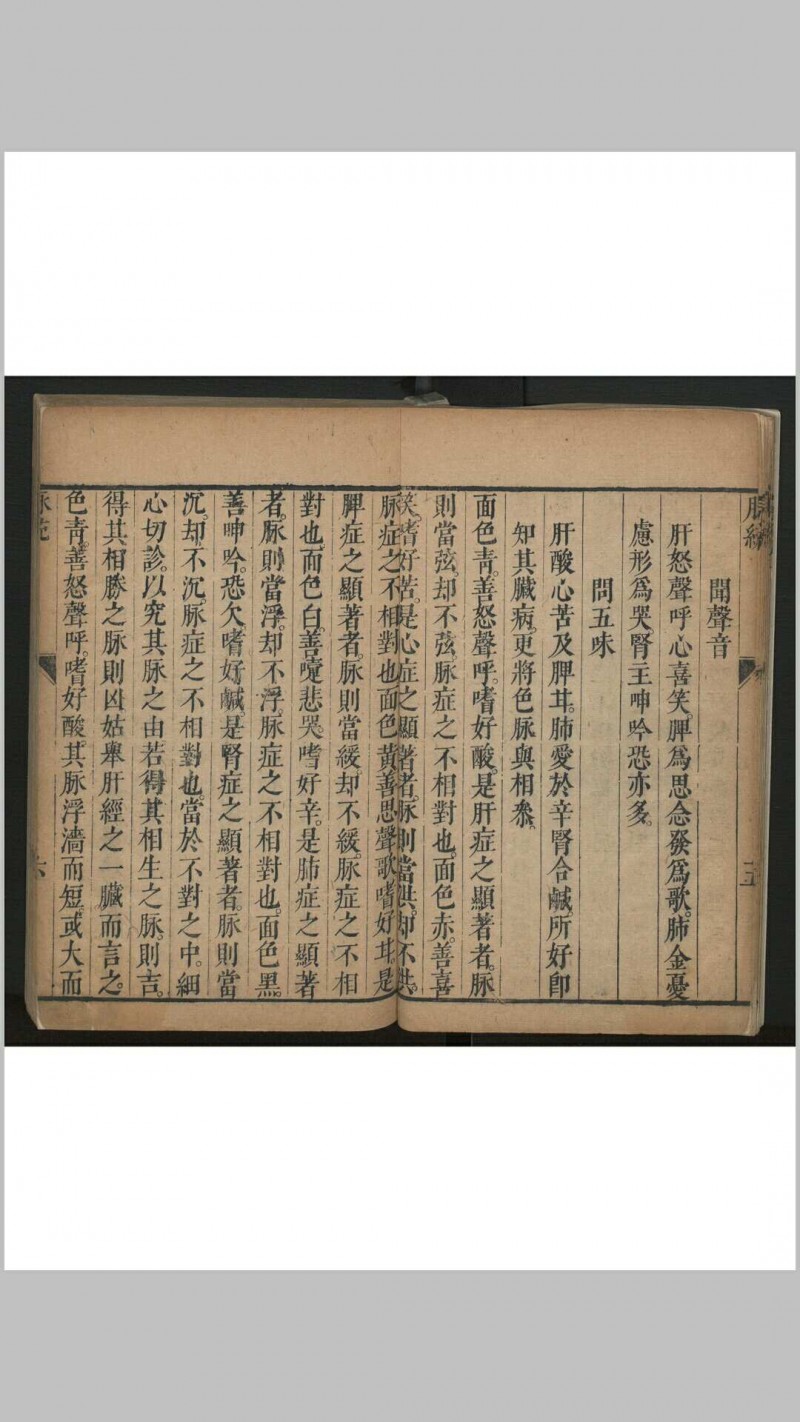 聞聲音
肝怒聲呼心喜笑。脾爲思念發爲歌。肺金憂
慮形爲哭腎主呻吟恐亦多。
問五味
肝酸心苦及脾耳。肺愛於辛腎合鹹。所好即
知其臟病。更將色脉與相叅。
面色青。善怒聲呼。嗜好酸。是肝症之顯著者。脉
則當弦。却不弦。脉症之不相對也。面色赤。善喜
笑。嗜好苦。是心症之顯著者。脉則當洪。却不洪。
脉症之不相對也面色黃善思聲歌嗜好耳。是
脾症之顯著者。脉則當緩却不緩。脉症之不相
對也。面色白。善嚏悲哭。嗜好辛。是肺症之顯著
者。脉則當浮。却不浮。脉症之不相對也。面色黑。
善呻吟。恐欠。嗜好鹹。是腎症之顯著者。脉則當
沉。却不沉。脉症之不相對也。當於不對之中。細
心切診。以究其脉之由若得其相生之脉。則吉。
得其相勝之脉則凶姑舉肝經之一臟而言之。
色青。善怒聲呼。嗜好酸其脉浮濇而短。或大而